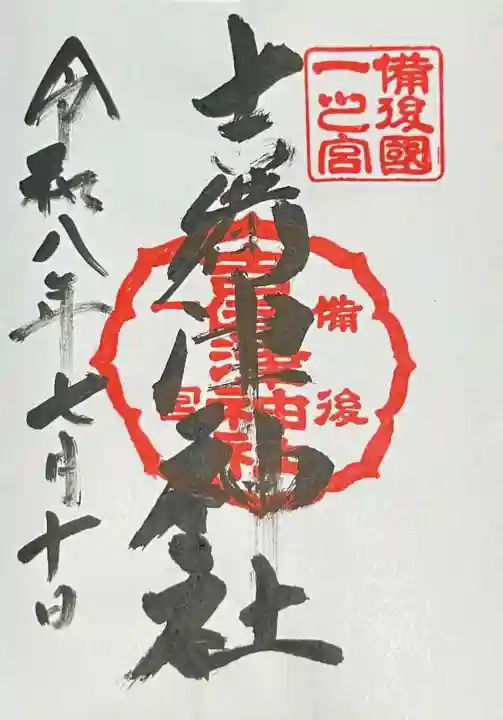 備後國
一之宮
吉備津神社
備後
吉備津神社
一宮
令和八年七月十日